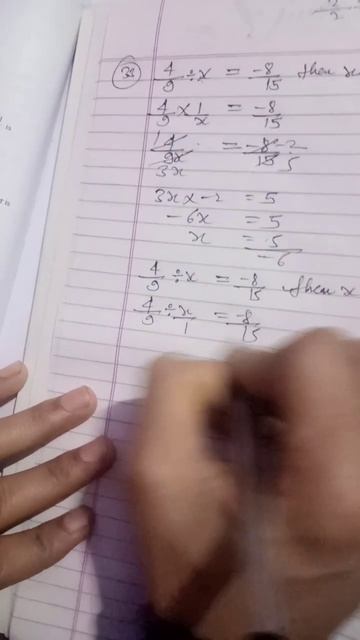 38 4/9 ÷ x = -8/15 then x
4/9 × 1/x = -8/15
1 4/9x 3x = -8 2/15 5
3x × -2 = 5
-6x = 5
x = 5/-6
4/9 ÷ x = -8/15 then x
4/9 ÷ x/1 = -8/15